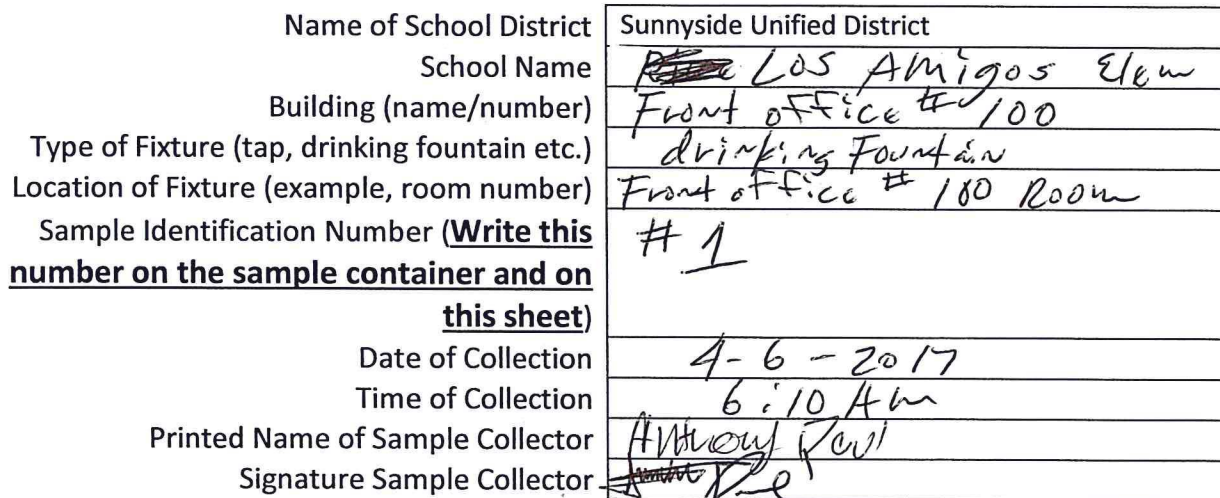 Name of School District Sunnyside Unified District
School Name Los Amigos Elem
Building (name/number) Front office # 100
Type of Fixture (tap, drinking fountain etc.) drinking Fountain
Location of Fixture (example, room number) Front office # 100 Room
Sample Identification Number (Write this # 1
number on the sample container and on
this sheet)
Date of Collection 4-6-2017
Time of Collection 6:10 Am
Printed Name of Sample Collector Anthony
Signature Sample Collector